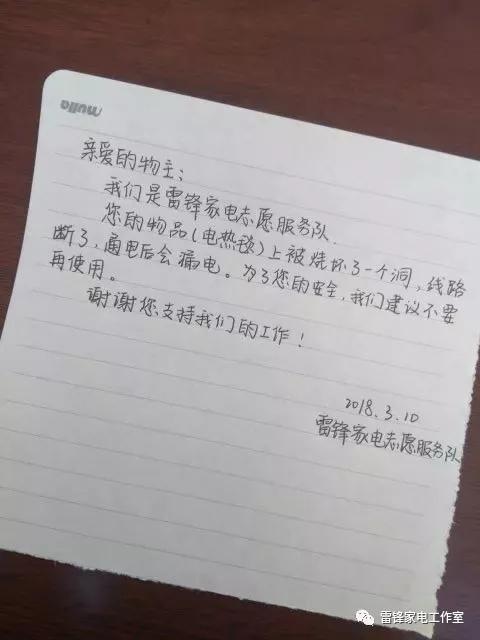 nulla
亲爱的物主：
我们是雷锋家电志愿服务队.
您的物品(电热毯)上被烧坏了一个洞,线路
断了,通电后会漏电。为了您的安全,我们建议不要
再使用。
谢谢您支持我们的工作！
2018.3.10
雷锋家电志愿服务队
雷锋家电工作室